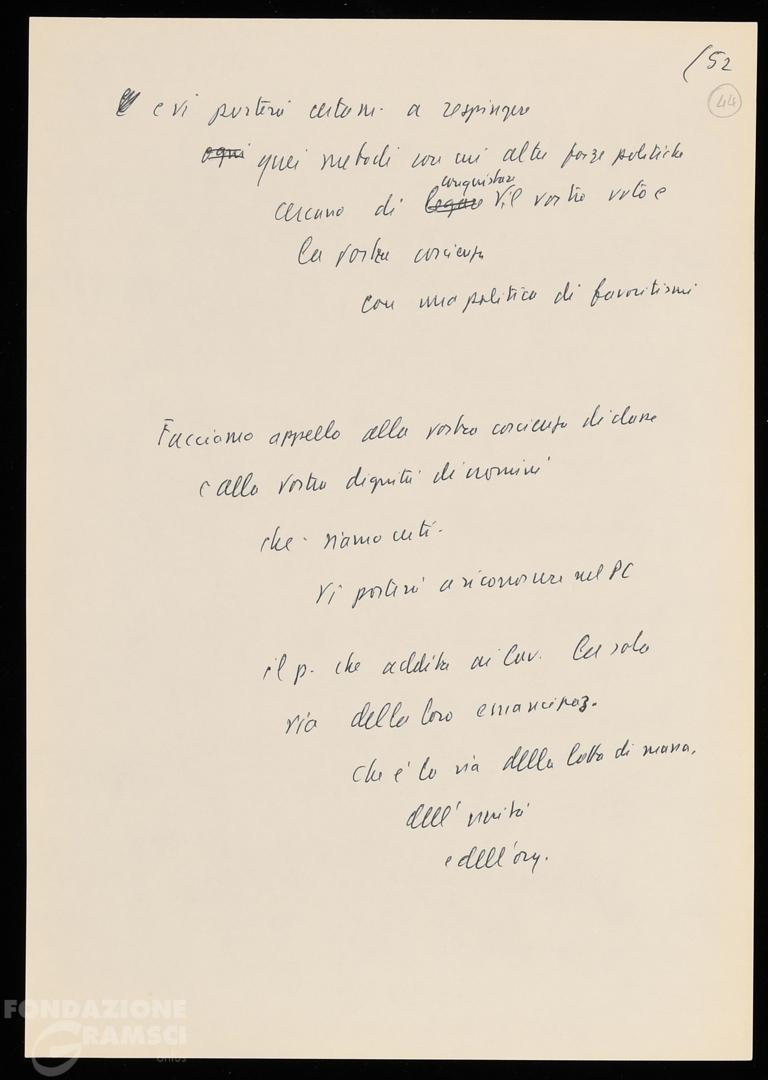 (52
44
e vi porterà certam. a respingere
ogni quei metodi con cui altre forze politiche
conquistare
cercano di legare il vostro voto e
la vostra coscienza
con una politica di favoritismi
Facciamo appello alla vostra coscienza di classe
e alla vostra dignità di uomini
che siamo certi.
Vi porterà a riconoscere nel PC
il p. che addita ai lav. la sola
via della loro emancipaz.
che è la via della lotta di massa,
dell'unità
e dell'org.
FONDAZIONE
GRAMSCI
onlus